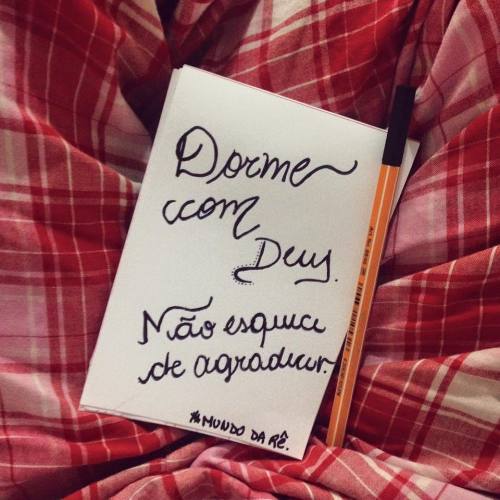 Dorme
com
Deus.
Não esqueça
de agradecer.
#MUNDO DA RÊ.